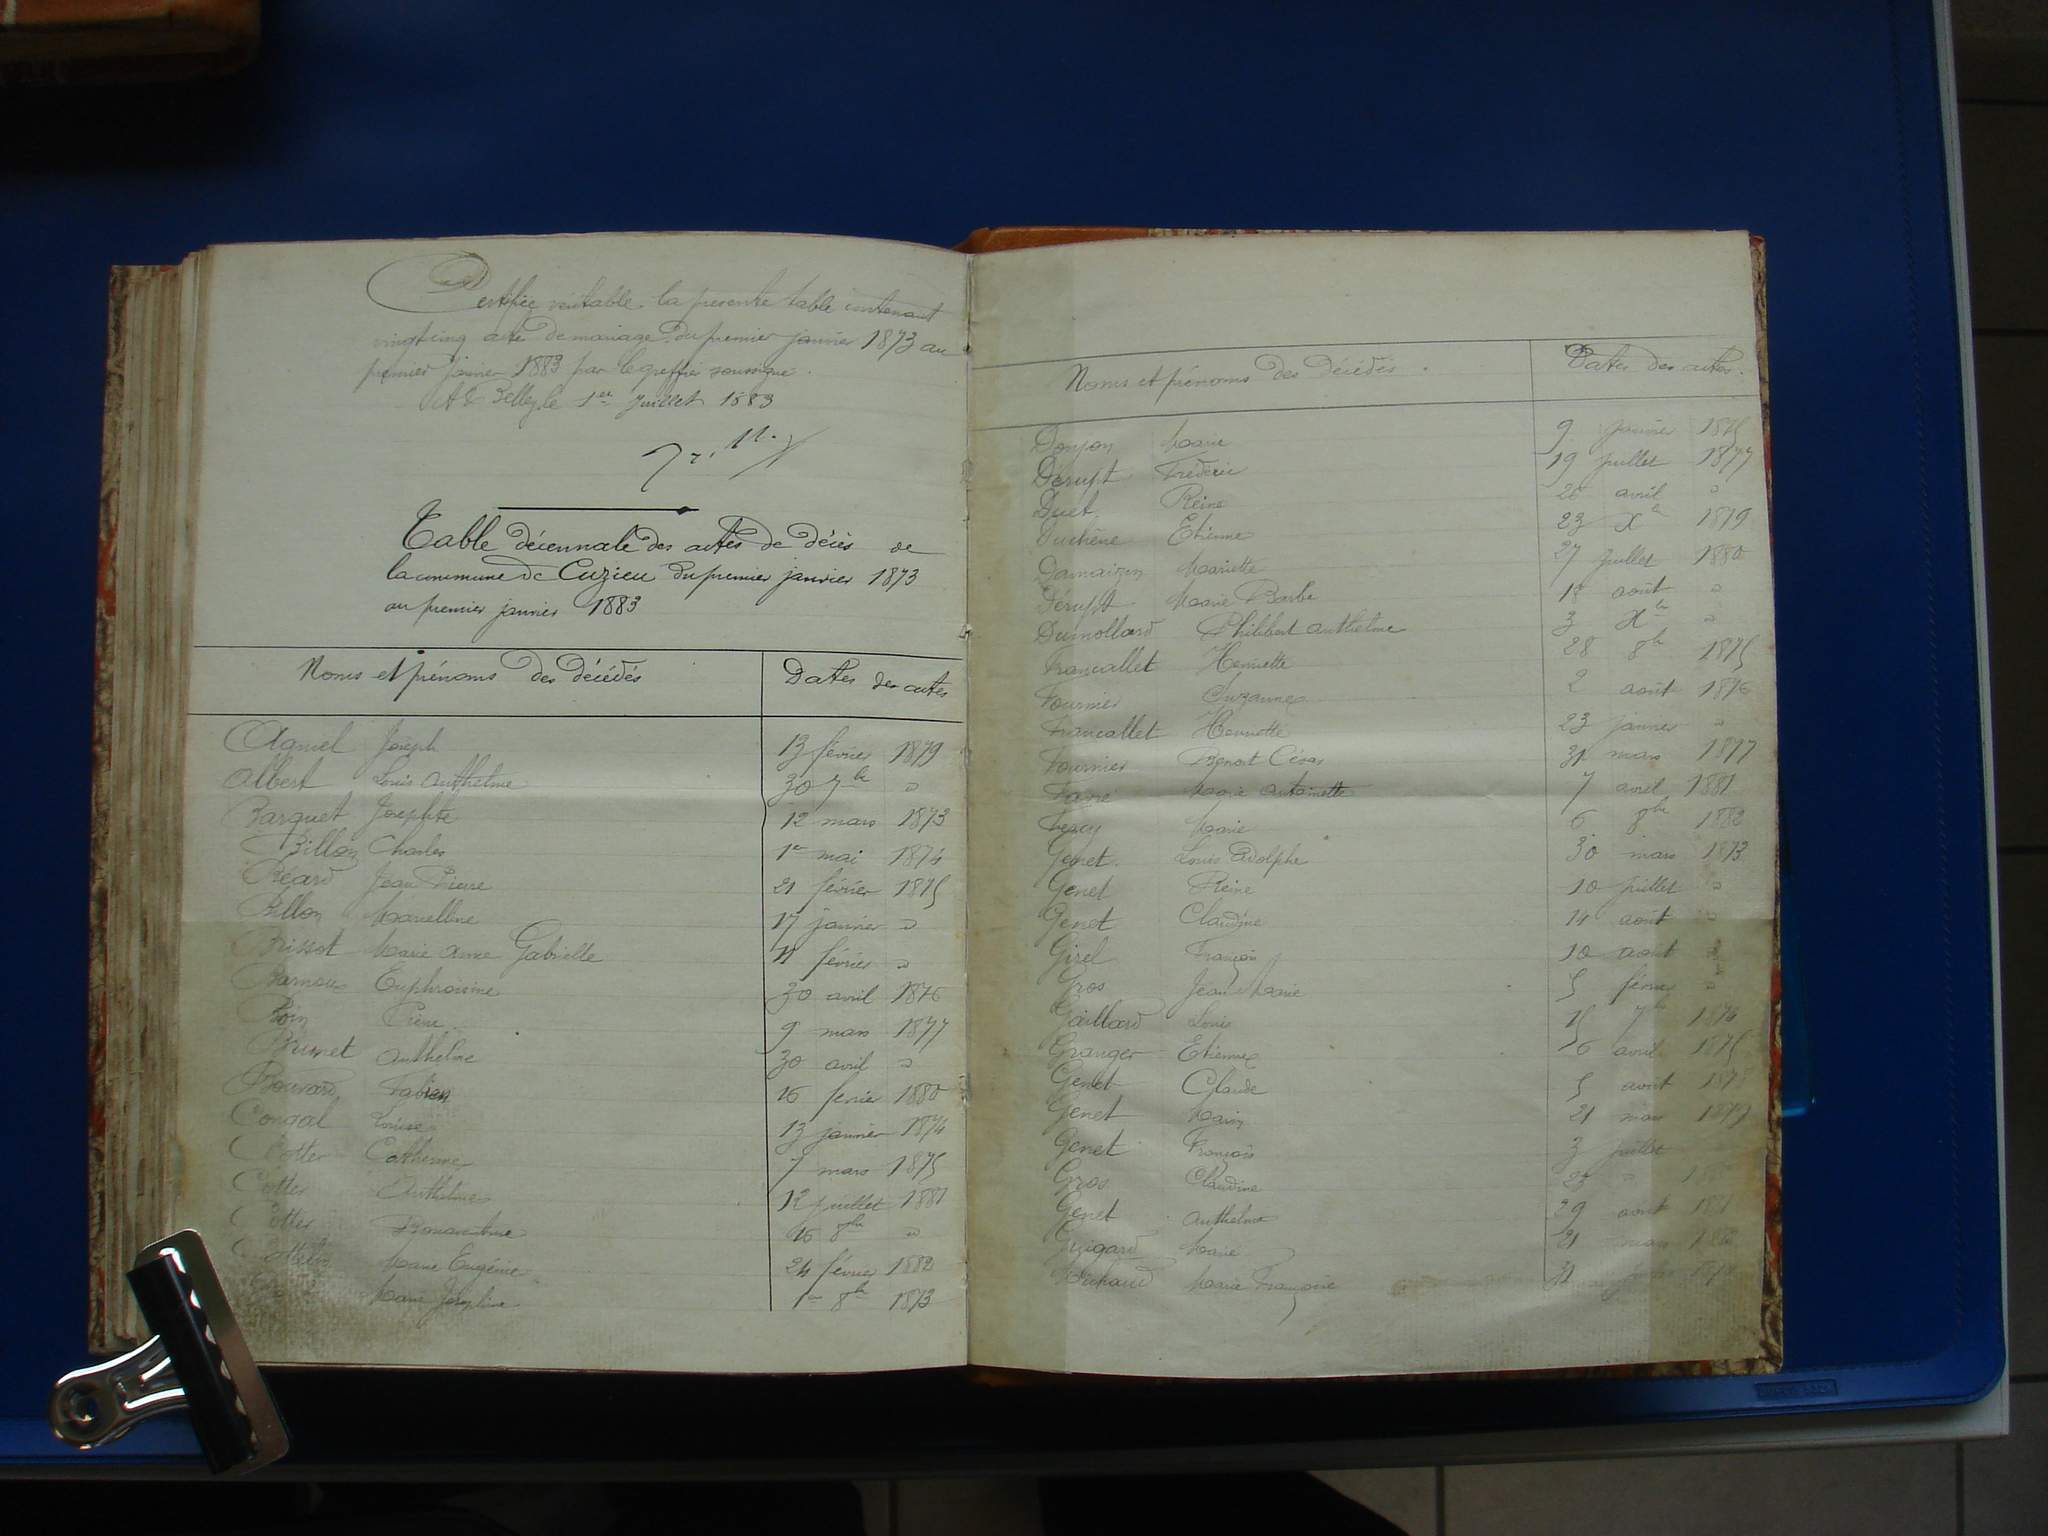 Certifiée véritable la présente table contenant
vingt cinq actes de mariage du premier janvier 1873 au
premier janvier 1883 par le greffier soussigné.
A Belley, le 1er Juillet 1883
Table décennale des actes de décès de
la commune de Cuzieu du premier janvier 1873
au premier janvier 1883
Noms et prénoms des décédés Dates des actes
Agniel Joseph 13 février 1879
Albert Louis Anthelme 30 7bre "
Barquet Josephte 12 mars 1873
Billon Charles 1er mai 1874
Béard Jean Pierre 21 février 1875
Billon 17 janvier "
Brissot Marie Anne Gabrielle 11 février "
Euphrosine 30 avril 1876
Pierre 9 mars 1877
Brunet Anthelme 30 avril "
Bouvard Fabien 16 février 1880
Congal Louise 13 janvier 1874
Cotter Catherine 7 mars 1875
Cotter Anthelme 12 juillet 1881
Cotter 16 8bre "
Marie Eugénie 24 février 1882
Marie Joséphine 1er 8bre 1873
Noms et prénoms des décédés. Dates des actes.
Donjon Marie 9 janvier 1875
Dérupt Frédéric 19 juillet 1877
Duet Reine avril "
Duchêne Etienne 23 Xbre 1879
Mariette 27 juillet 1880
Dérupt Marie Barbe 18 août "
Dumollard Philibert Anthelme 3 Xbre "
Francallet Henriette 28 8bre 1875
Fournier Suzanne 2 août 1876
Francallet Henriette 23 janvier "
Fournier Benoit César 31 mars 1877
Favre Marie Antoinette 7 avril 1881
Marie 6 8bre 1882
Genet Louis Adolphe 30 mars 1873
Genet Reine 10 juillet "
Genet Claudine 14 août "
Girel François 10 août "
Gros Jean Marie 5 février "
Gaillard Louis 15 7bre 1874
Granger Etienne 16 avril 1875
Genet Claude 5 août 1878
Genet 21 mars 1879
Genet François 3 juillet
Gros Claudine 23 "
Genet Anthelme 29 août 1881
Guigard Marie 21 mars
Marie Françoise 31